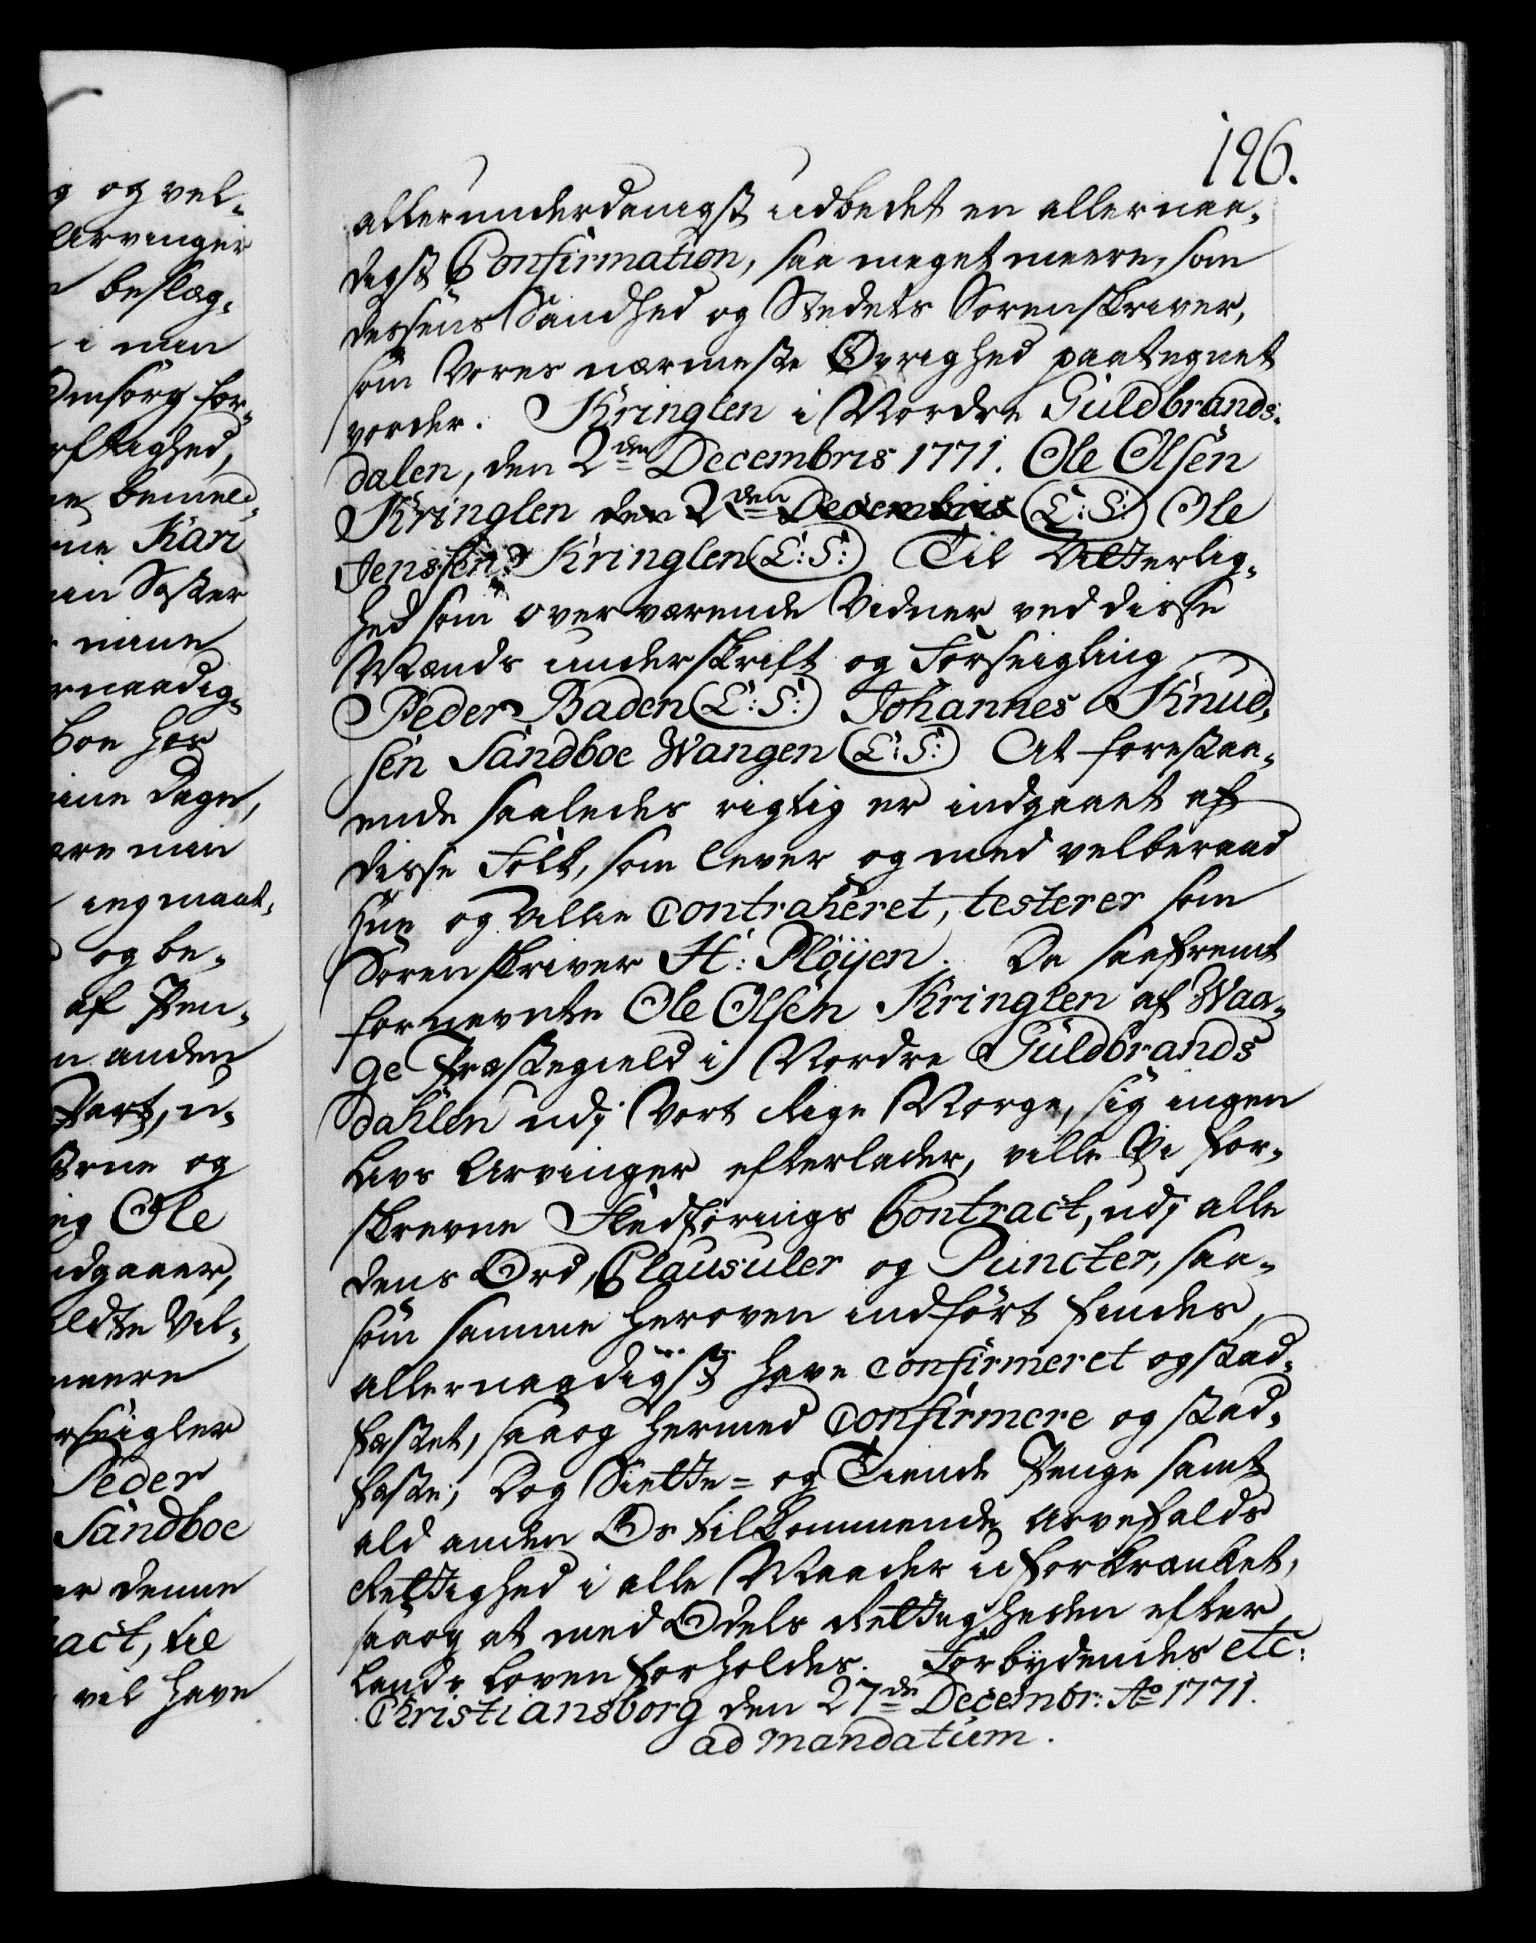 196.
allerunderdanigst udbedet en allernaa-
digst Confirmation, saa meget meere, som
dessens Sandhed og Stedets Sorenskriver,
som Vores nærmeste Øvrighed paategnet
vorder. Kringlen i Nordre Guldbrands-
dalen, den 2den Decembris 1771. Ole Olsen
Kringlen den 2den Decembris (L:S:) Ole
Jenssen Kringlen (L:S:) Til Vitterlig-
hed som overværende Vidner ved disse
Mænds underskrift og Forseigling
Peder Baden (L:S:) Johannes Knud-
sen Sandboe Wangen (L:S:) At forestaa-
ende saaledes rigtig er indgaaet af
disse Folk, som lever og med velberaad
Hue og Villie contraheret, testerer som
Sorenskriver H: Pløyen. Da saafremt
fornevnte Ole Olsen Kringlen af Waa-
ge Præstegield i Nordre Guldbrands
dahlen udj Vort Rige Norge, sig ingen
Livs Arvinger efterlader, ville Vi for-
skrevne Fledførings Contract, udj alle
dens Ord, Clausuler og Puncter, saa-
som samme heroven indført findes,
allernaadigst have confirmeret og stad-
fæstet, saa og hermed confirmere og stad-
fæste; Dog Siette- og Tiende Penge samt
ald anden Os tilkommende Arvefalds
Rettighed i alle Maader uforkrænket,
saa og at med Odels Rettigheden efter
Lands Loven forholdes. Forbydendes etc:
Christiansborg den 27de Decembr: Ao 1771.
ad mandatum.